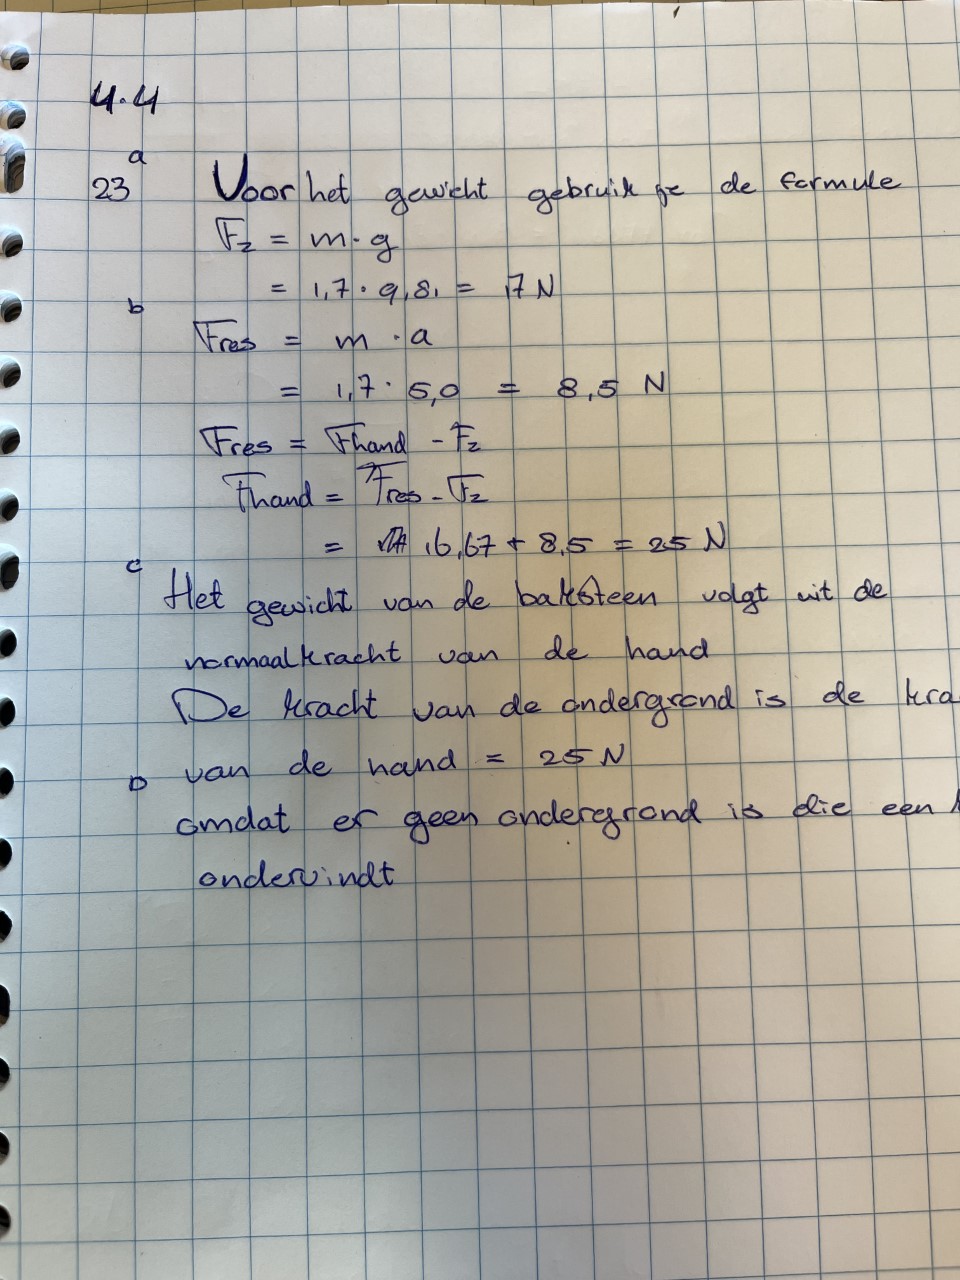 4.4
23 a Voor het gewicht gebruik je de formule
Fz = m · g
= 1,7 · 9,81 = 17 N
b
Fres = m · a
= 1,7 · 5,0 = 8,5 N
Fres = Fhand - Fz
Fhand = Fres - Fz
= 16,67 + 8,5 = 25 N
c Het gewicht van de baksteen volgt uit de
normaalkracht van de hand
De kracht van de ondergrond is de kra
van de hand = 25 N
D
omdat er geen ondergrond is die een
ondervindt